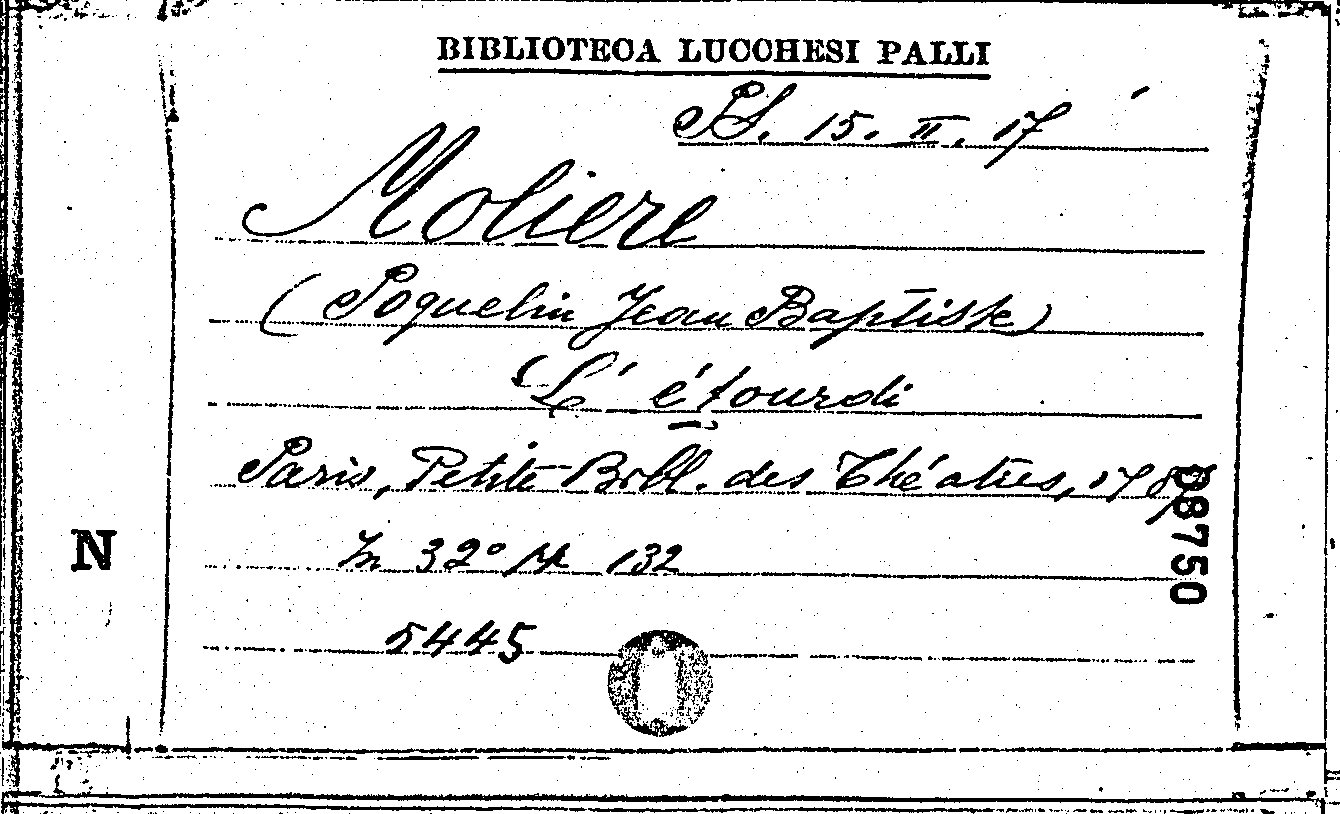 BIBLIOTECA LUCCHESI PALLI
PS. 15. II. 17
Moliere
(Poquelin Jean Baptiste)
L' étourdi
Paris, Petite Bibl. des Théatres,
In 32° 132
5445
N
08750